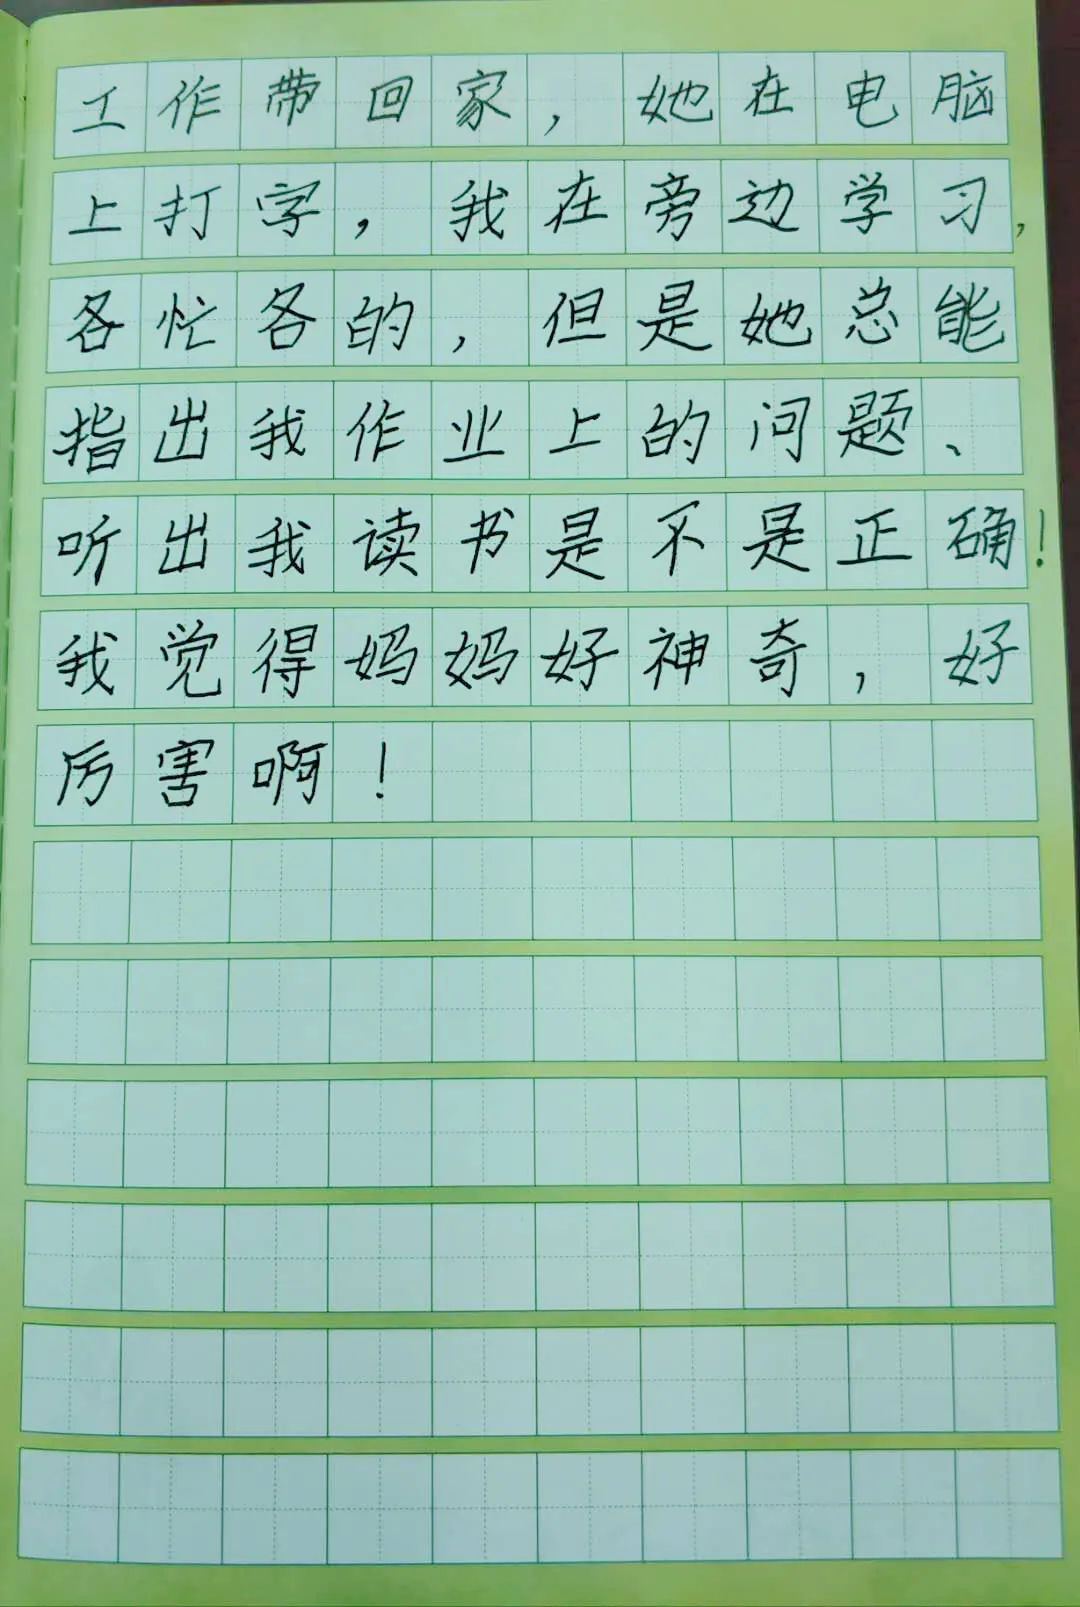 工作带回家，她在电脑
上打字，我在旁边学习，
各忙各的，但是她总能
指出我作业上的问题、
听出我读书是不是正确！
我觉得妈妈好神奇，好
厉害啊！